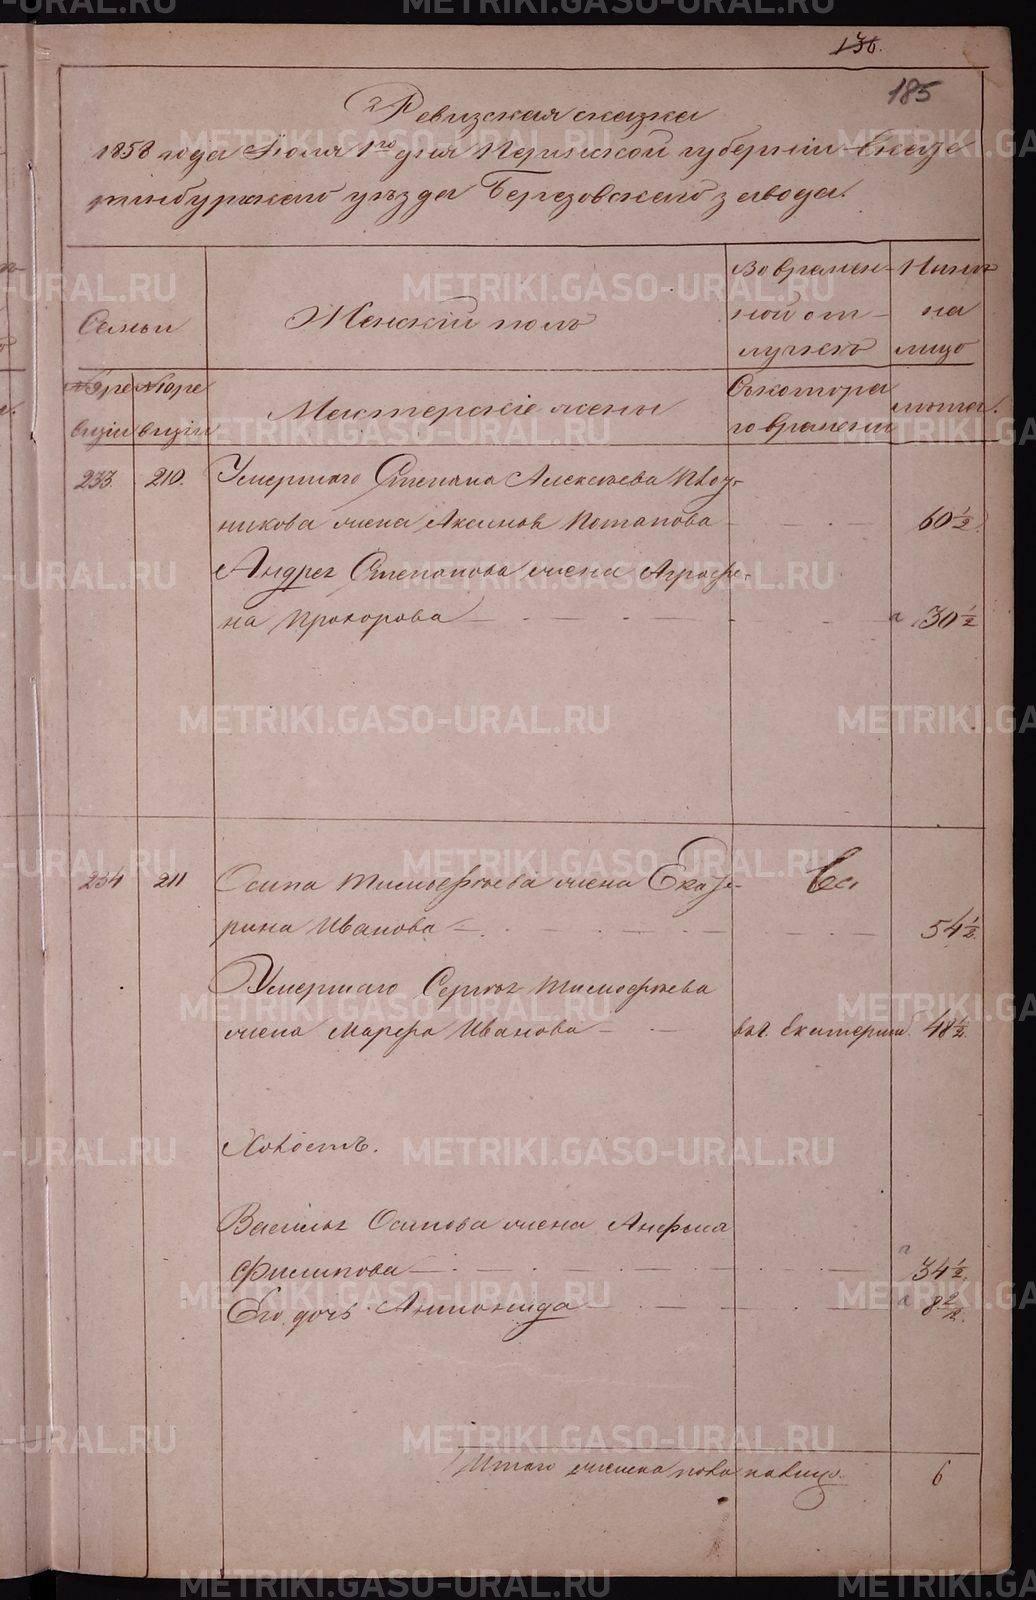 136.
185
Ревизская сказка
1858 года Июля 1го дня Пермской губернии Екате
ринбургскаго уѣзда Березовскаго завода.
Семьи
Женскій полъ
Во времен-
ной от-
лучкѣ
Нынѣ
на
лицо
№ 9 ре
визіи
№ 10 ре
визіи
Мастерскіе жены
Съ котора
го времени
лѣта.
233. 210. Умершаго Степана Алексѣева
никова жена Аксинья Потапова 60 1/2
Андрея Степанова жена Аграфе-
на Прохорова 30 1/2
234 211 Осипа Тимофѣева жена Екате-
рина Иванова 54 1/2
Умершаго Сергѣя Тимофѣева
жена Марфа Иванова Екатерин 48 1/2
Холостъ.
Василья Осипова жена Анфиса
Филипова 34 1/2
Его дочь Антонида 8 2/2
Итого женска пола на лицо. 6
METRIKI.GASO-URAL.RU